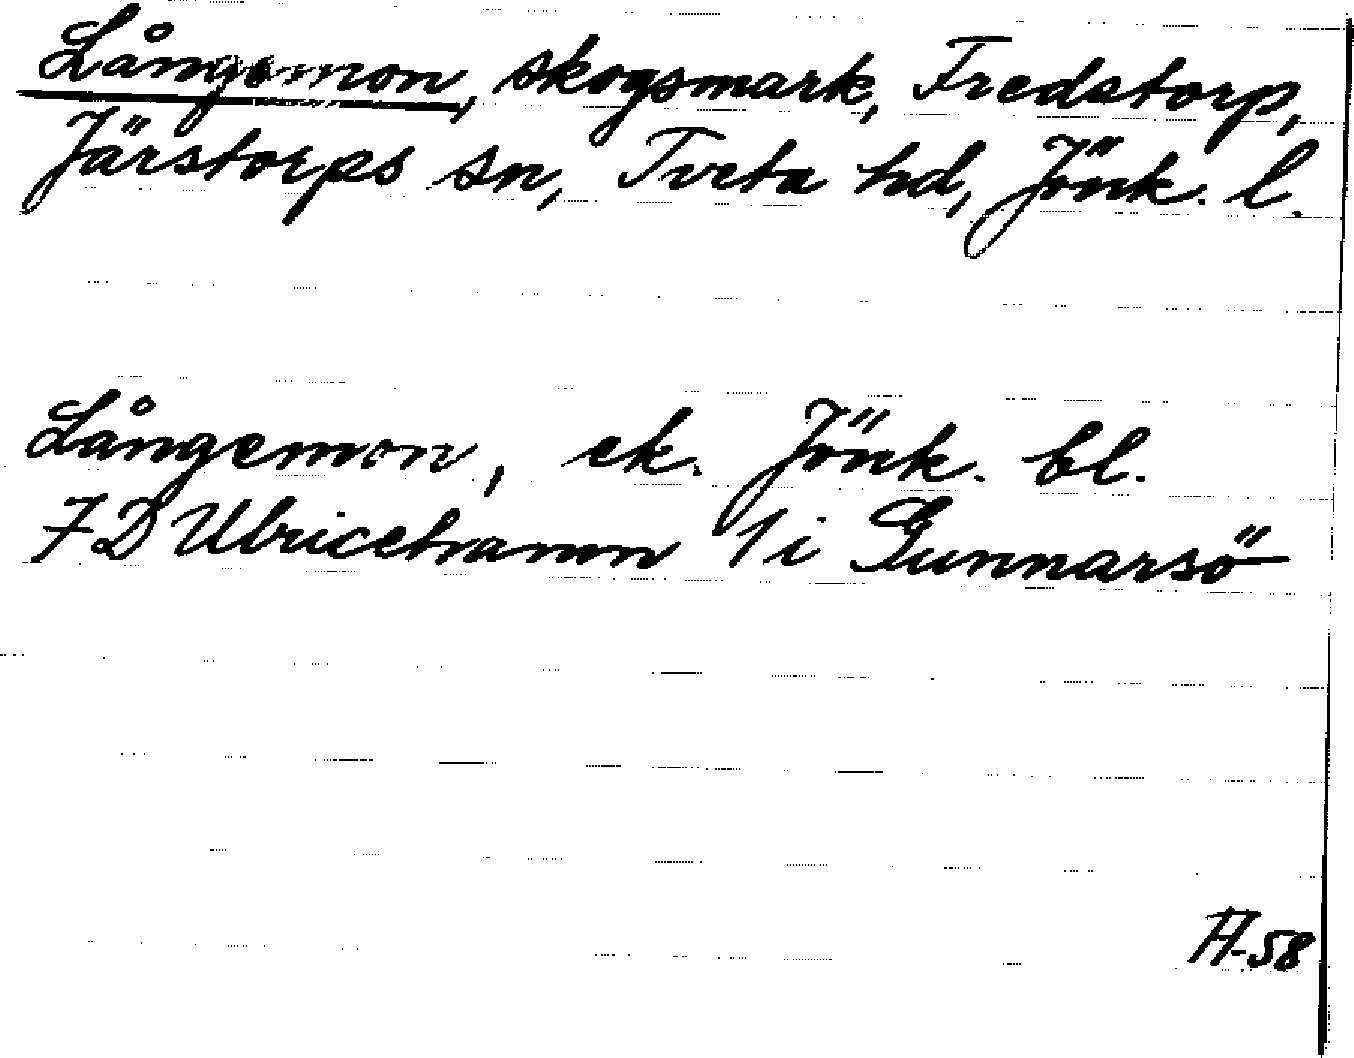 Långemon, skogsmark, Fredstorp,
Järstorps sn, Tveta hd, Jönk. l.
Långemon, ek. Jönk. bl.
7 D Ulricehamn 1 i Gunnarsö
A-58